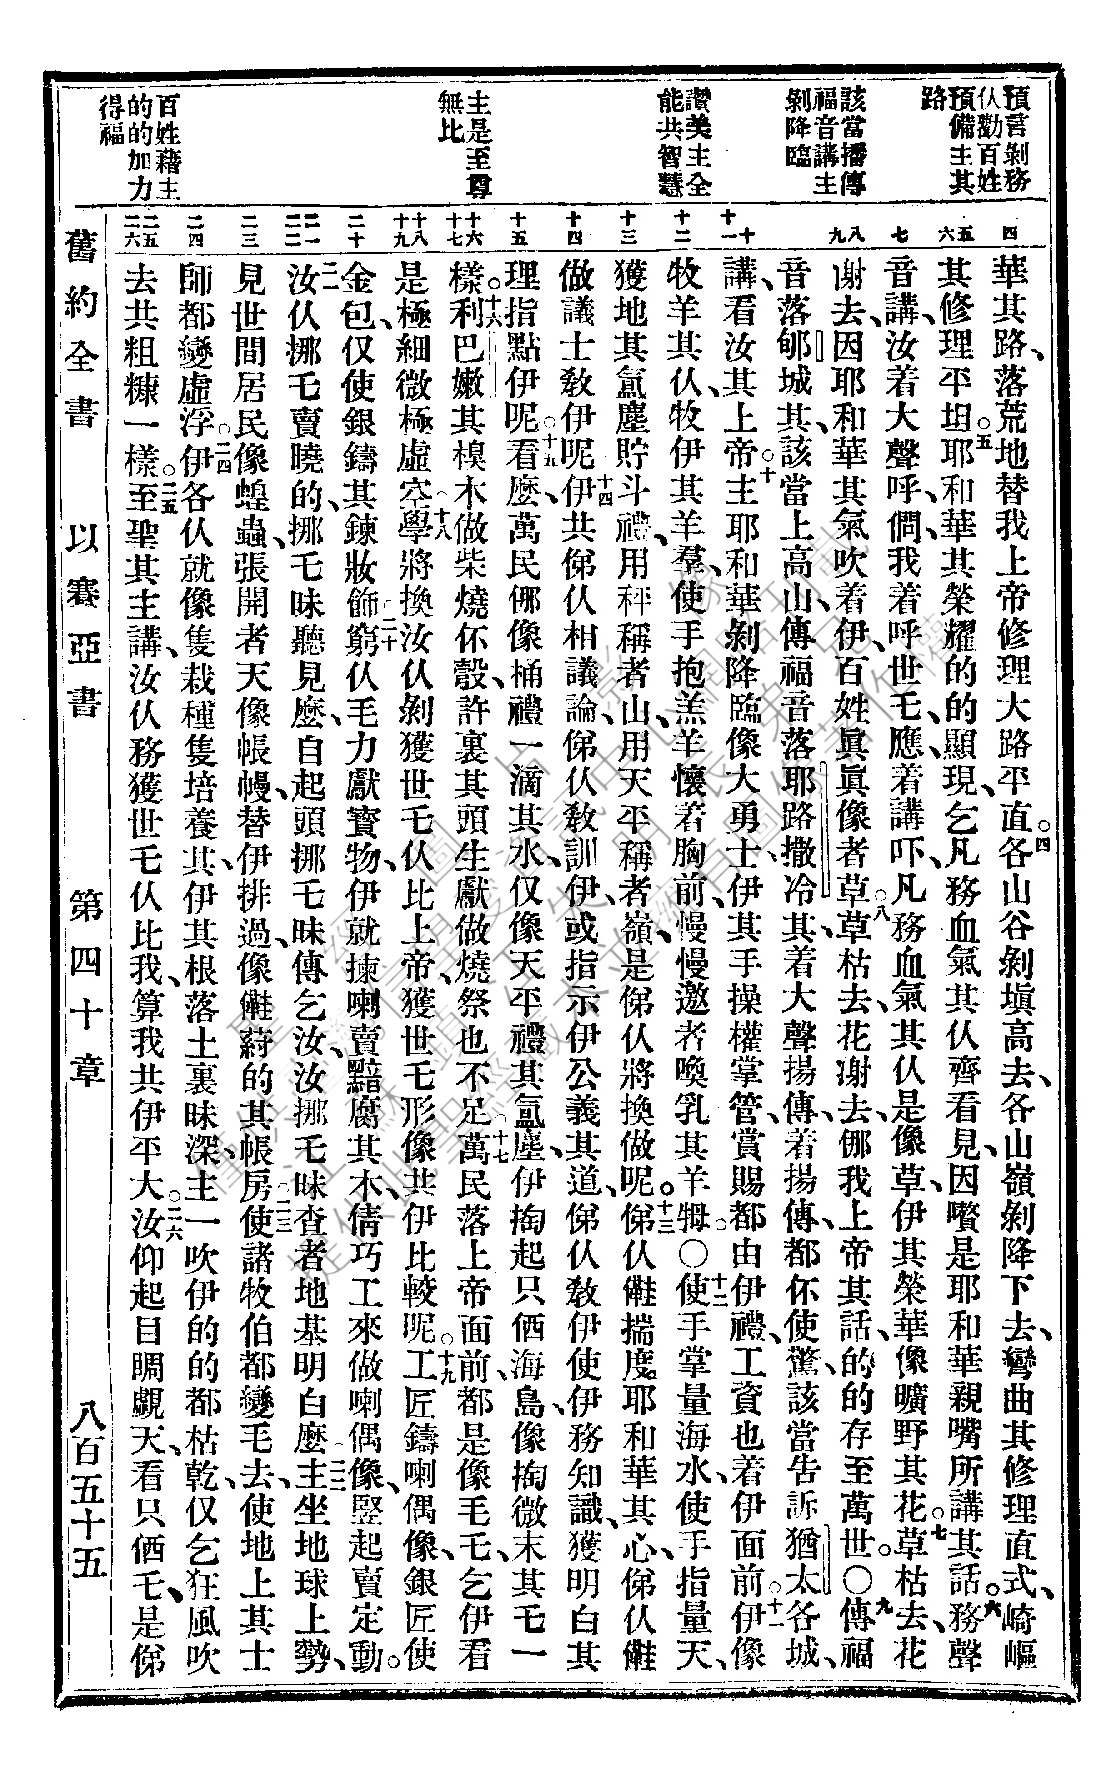 預言剝務
伩勸百姓
預備主其
路
該當播傳
福音講主
剝降臨
讚美主全
能共智慧
主是至尊
無比
百姓藉主
的的加力
得福
四
五
六
七
八
九
十
十一
十二
十三
十四
十五
十六
十七
十八
十九
二十
二一
二二
二三
二四
二五
二六
華其路、落荒地替我上帝修理大路平直。四各山谷剝塡高去、各山嶺剝降下去、彎曲其修理直式、崎嶇
其修理平坦。五耶和華其榮耀的的顯現、乞凡務血氣其伩齊看見、因嚽是耶和華親嘴所講其話。六務聲
音講、汝着大聲呼、倜我着呼世乇、應着講吓、凡務血氣其伩是像草、伊其榮華像曠野其花。七草枯去、花
謝去、因耶和華其氣吹着伊、百姓眞眞像者草。八草枯去、花謝去、㑚我上帝其話、的的存至萬世。〇九傳福
音落郇城其、該當上高山、傳福音落耶路撒冷其、着大聲揚傳、着揚傳、都伓使驚、該當告訴猶太各城、
講、看汝其上帝。十主耶和華剝降臨像大勇士、伊其手操權掌管、賞賜都由伊禮、工資也着伊面前。十一伊像
牧羊其伩、牧伊其羊羣、使手抱羔羊懷着胸前、慢慢邀者喚乳其羊㹀。〇十二使手掌量海水、使手指量天、
獲地其氲塵貯斗禮、用秤稱者山、用天平稱者嶺、是俤伩將換做呢。十三俤伩𣍐揣度耶和華其心、俤伩𣍐
做議士敎伊呢。十四伊共俤伩相議論、俤伩敎訓伊、或指示伊公義其道、俤伩敎伊使伊務知識、獲明白其
理指點伊呢。十五看麽、萬民㑚像桶禮一滴其水、仅像天平禮其氲塵、伊掏起只㑚海島、像掏微末其乇一
樣。十六利巴嫩其模木做柴燒伓彀、許裏其頭生獻做燒祭也不足。十七萬民落上帝面前、都是像毛乇、乞伊看
是極細微極虛空。十八學將換汝伩剝獲世乇伩比上帝、獲世乇形像共伊比較呢。十九工匠鑄喇偶像、銀匠使
金包、仅使銀鑄其鍊妝飾。二十窮伩毛力獻寶物、伊就揀喇賣黯腐其木、倩巧工來做喇偶像、竪起賣定動。
二一汝伩挪乇賣曉的、挪乇昧聽見麽、自起頭挪乇昧傳乞汝、汝挪乇昧查者地基明白麽。二二主坐地球上勢、
見世間居民像蝗蟲、張開者天像帳幔、替伊排過、像𣍐蔚的其帳房。二三使諸牧伯都變毛去、使地上其士
師都變虛浮。二四伊各伩就像隻栽種隻培養其、伊其根落土裏昧深、主一吹伊的的都枯乾、仅乞狂風吹
去共粗糠一樣。二五至聖其主講、汝伩務獲世乇伩比我、算我共伊平大。二六汝仰起目睭覷天、看只㑚乇是俤
舊約全書 以賽亞書 第四十章 八百五十五